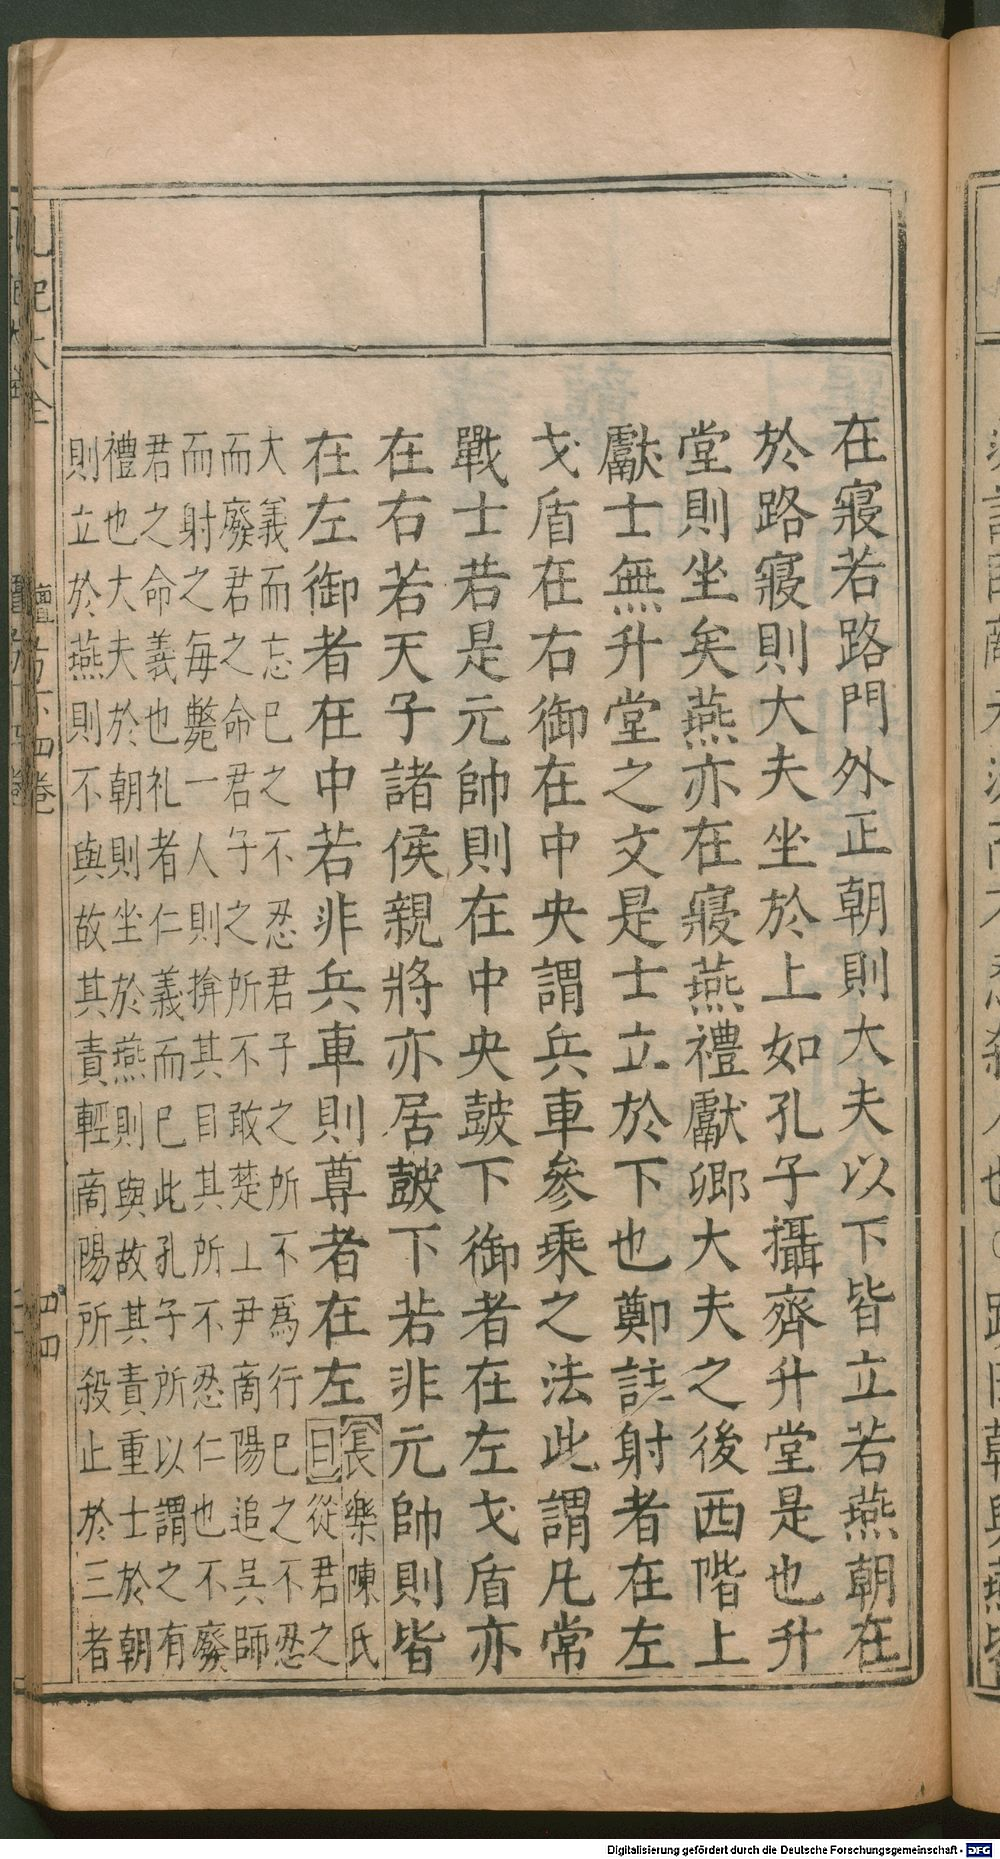 在寢若路門外正朝則大夫以下皆立若燕朝在
於路寢則大夫坐於上如孔子攝齊升堂是也升
堂則坐矣燕亦在寢燕禮獻卿大夫之後西階上
獻士無升堂之文是士立於下也鄭註射者在左
戈盾在右御在中央謂兵車參乘之法此謂凡常
戰士若是元帥則在中央鼓下御者在左戈盾亦
在右若天子諸侯親將亦居鼓下若非元帥則皆
在左御者在中若非兵車則尊者在左
長樂陳氏
曰從君之
大義而忘已之不忍君子之所不爲行已之不忍
而廢君之命君子之所不敢楚工尹商陽追吳師
而射之每斃一人則揜其目其所不忍仁也不廢
君之命義也礼者仁義而已此孔子所以謂之有
禮也大夫於朝則坐於燕則與故其責重士於朝
則立於燕則不與故其責輕商陽所殺止於三者
禮記大全
檀弓下四卷
四四
Digitalisierung gefördert durch die Deutsche Forschungsgemeinschaft - DFG